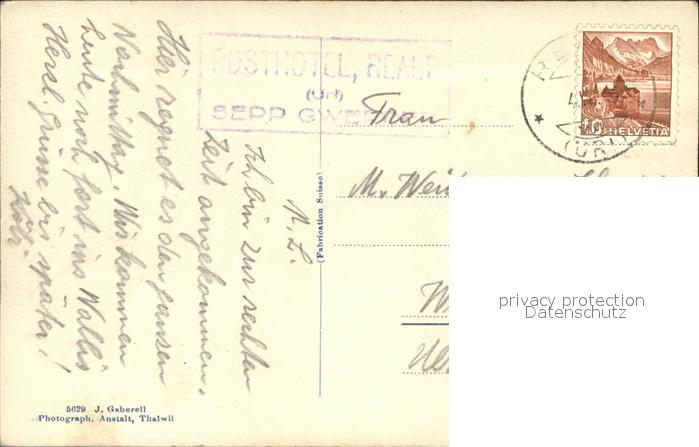 M. L.
Ich bin zur rechten
Zeit angekommen.
Hier regnet es den ganzen
Nachmittag. Wir kommen
heute noch fort ins Wallis
Herzl. Grüsse bis später!
POSTHOTEL, REALP
(Uri)
SEPP GWE
Frau
M.
(Fabrication Suisse)
10 HELVETIA
(URI)
privacy protection
Datenschutz
5629 J. Gaberell
Photograph. Anstalt, Thalwil